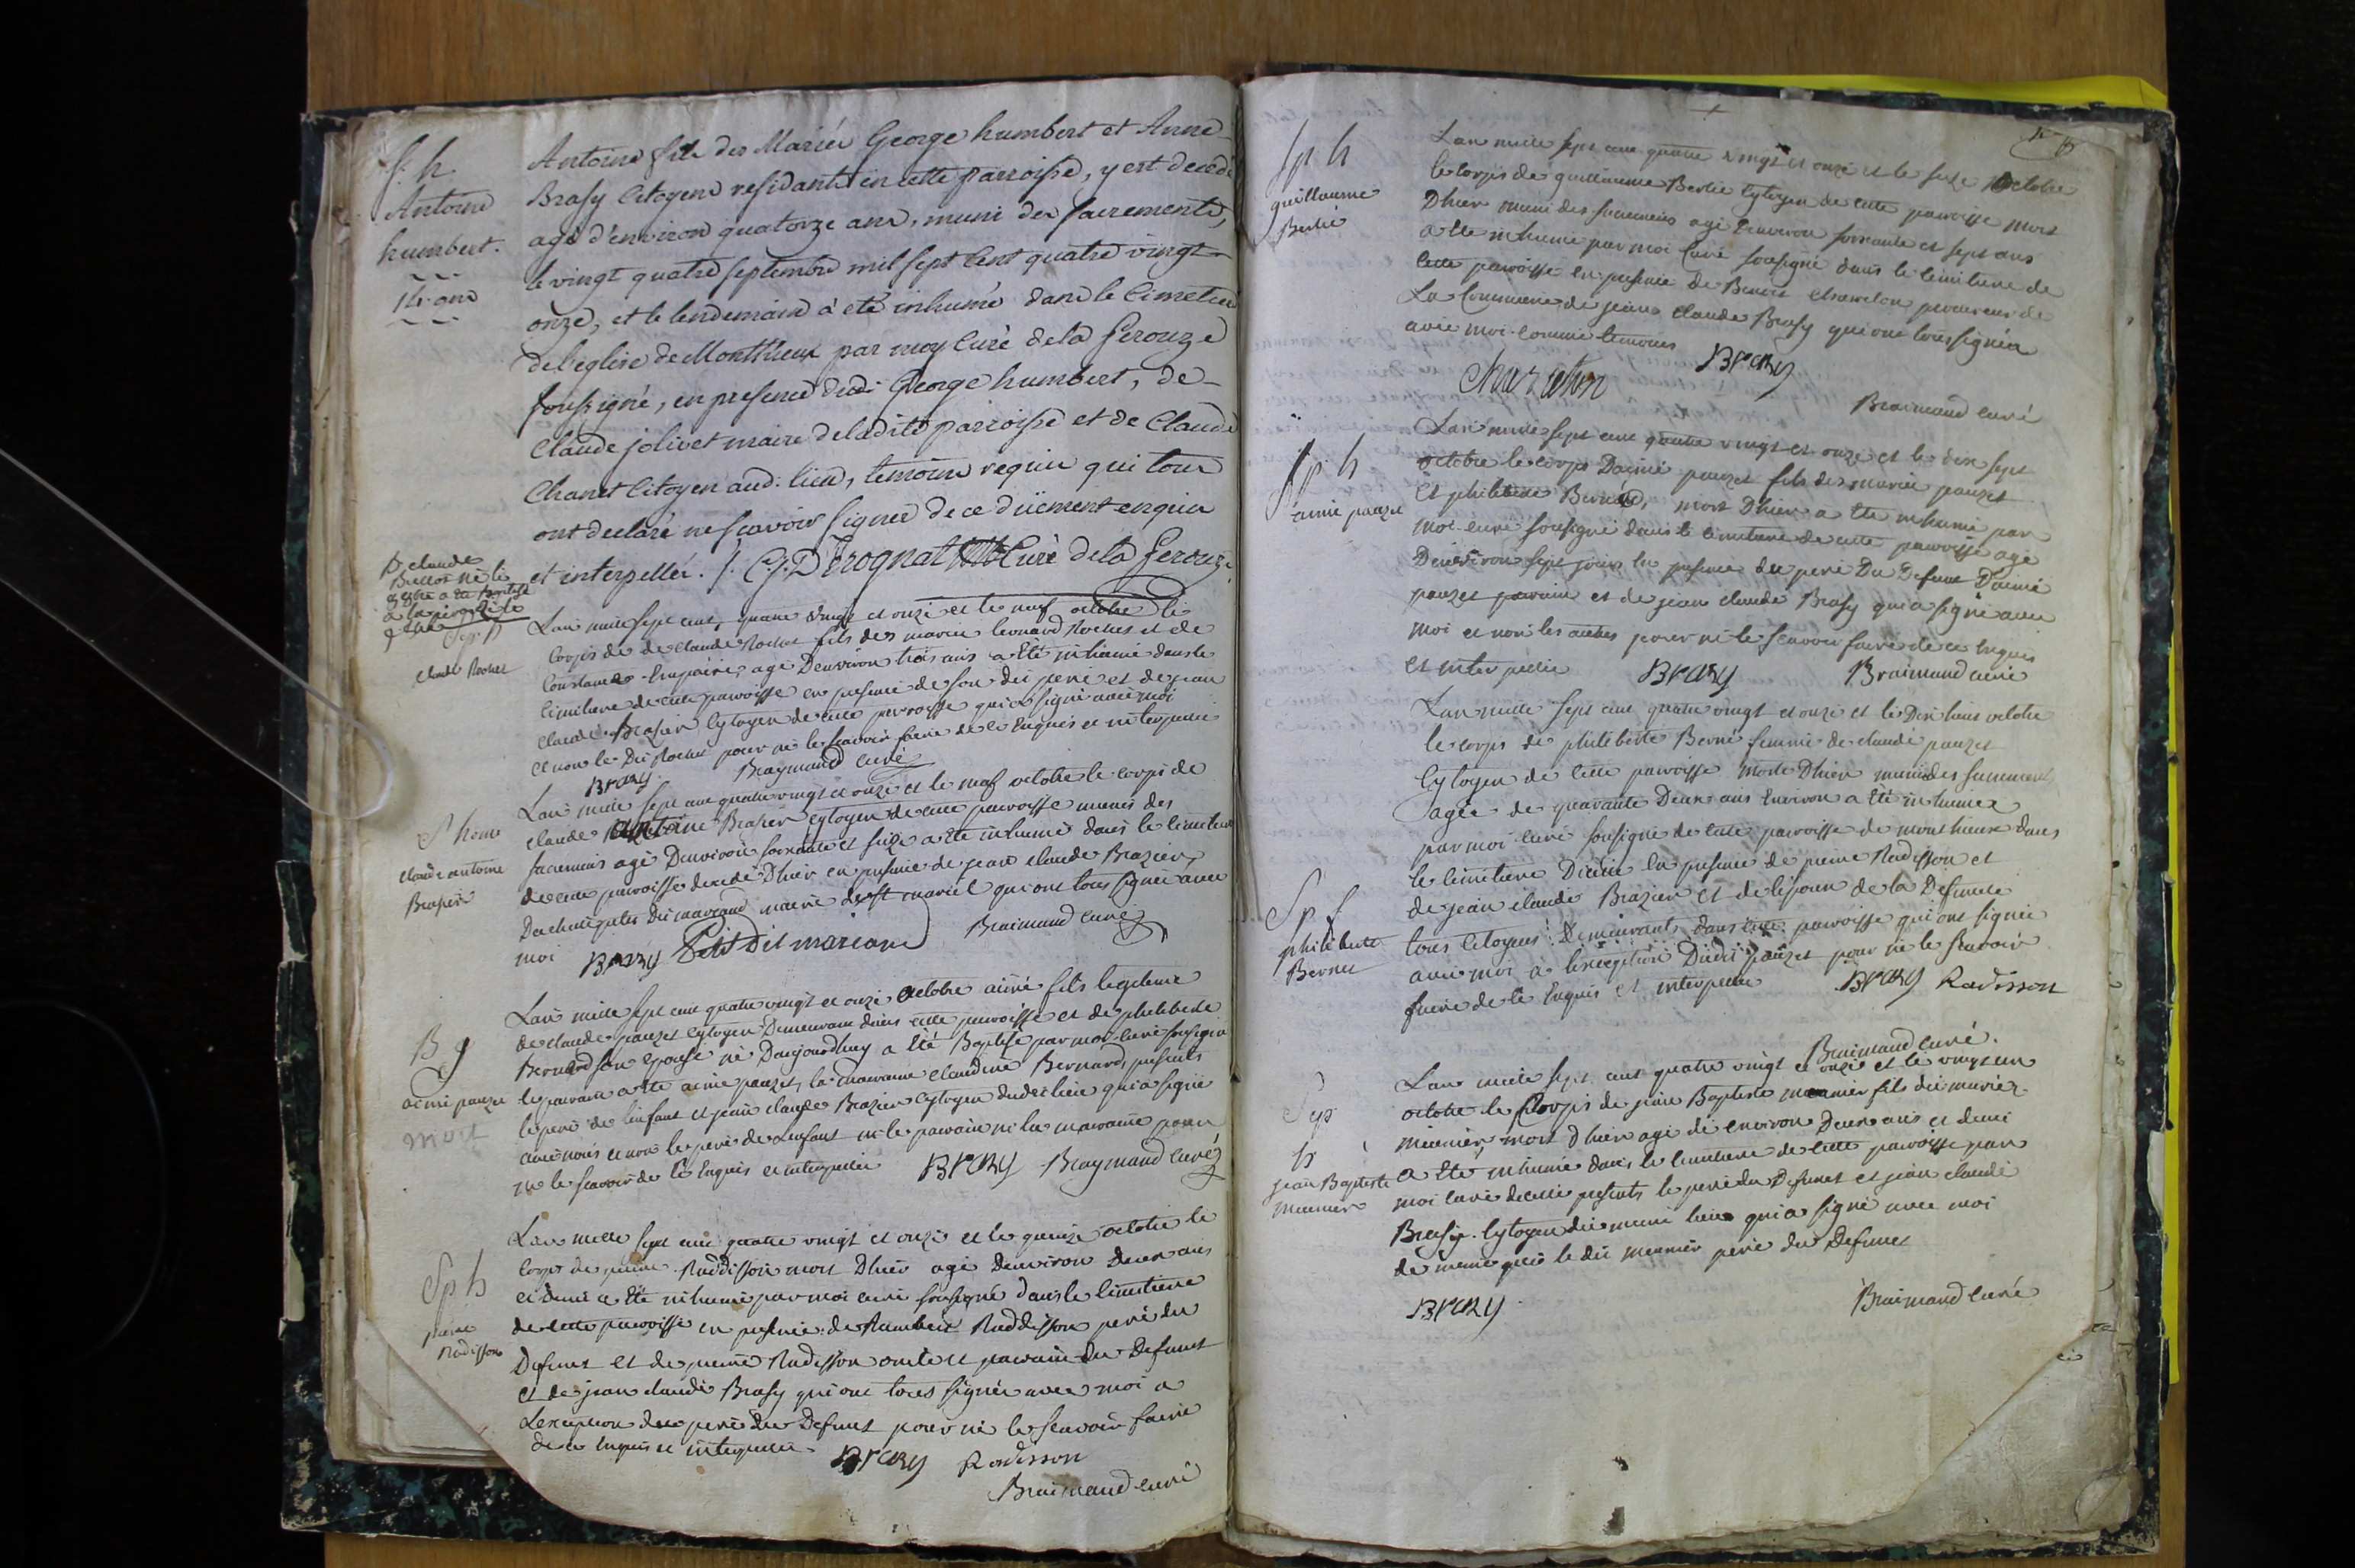 S. h.
Antoine
humbert.
14 ans
Antoine fils des Mariés George humbert et Anne
Brasy Citoyens residants en cette parroisse, y est decedé
agé d'environ quatorze ans, muni des sacrements,
le vingt quatre septembre mil sept cent quatre vingt
onze, et le lendemain a été inhumé dans le Cimetiere
de l'eglise de Monthieux par moy Curé de la perouze
soussigné, en presence dudi George humbert, de
Claude jolivet maire deladite parroisse et de Claude
Chanet Citoyen aud. lieu, temoins requis qui tous
ont declaré ne scavoir signer de ce düement enquis
et interpellés. C.J. Derognat Curé de la perouze
claude Rochet
Lan mille sept cent quatre vingt et onze et le neuf octobre le
Corps de de claude Rochet fils des mariés leonard Rochet et de
agé Denviron trois ans a Eté inhumé dans le
Cimitiere de cette parroisse en presence de son dit pere et de jean
claude Brazier Cytoyen de cette parroisse qui a signé avec moi
et non le Dit Rochet pour ne le scavoir faire de ce Enquis et interpellé
Brazy Braymand curé
S home
claude antoine
Brasier
Lan mille sept cent quatre vingt et onze et le neuf octobre le corps de
claude antoine Brasier Cytoyen de cette parroisse munis des
sacremens agé Denviron soixante et seize a été inhumé dans le cimitiere
de cette parroisse decedé Dhier en presence de jean claude Brazier,
maire de st marcel qui ont tous signés avec
moi Brazy Petit Dit mariand Braimand curé
B g
aimé pauzet
mort
Lan mille sept cent quatre vingt et onze octobre aimé fils legitime
de claude pauzet Cytoyen Demeurant dans cette parroisse et de philiberte
Bernard son epouse né Daujourdhuy a été Baptisé par moi curé soussigné
le parrain a été aimé pauzet, la marraine claudine Bernard, presents
le pere de lenfant et jean claude Brazier Cytoyen dudit lieu qui a signé
avec nous et non le pere de Lenfant ni le parrain ni la marraine pour
ne le scavoir de ce Enquis et interpellé Brazy Braymand curé
Sp h
pierre
Radisson
Lan mille sept cent quatre vingt et onze et le quinze octobre le
corps de pierre Raddisson mort Dhier agé Denviron Deux ans
et demi a Eté inhumé par moi curé soussigné dans le cimitiere
de cette parroisse en presence de Rambert Raddisson pere du
Defunt et de pierre Radisson oncle et parrain du Defunt
et de jean claude Brasy qui ont tous signés avec moi a
Lexception du pere du Defunt pour ne le scavoir faire
de ce enquis et interpellé Brazy Radisson
Braimand curé
Sp h
guillaume
Berlié
Lan mille sept cent quatre vingt et onze et le seize octobre
le corps de guillaume Berlié Cytoyen de cette parroisse mort
Dhier muni des sacremens agé Denviron soixante et sept ans
a Eté inhumé par moi Curé soussigné dans le cimitiere de
cette parroisse en presence de Benoit Chavelon procureur de
La Commune de jean Claude Brasy qui ont tous signés
avec moi comme temoins Brazy
Braimand curé
Sp h
aimé pauzet
Lan mille sept cent quatre vingt et onze et le dix sept
octobre le corps Daimé pauzet fils des mariés pauzet
Et philiberte Berné, mort Dhier a Eté inhumé par
moi curé soussigné dans le cimitiere de cette parroisse agé
Denviron sept jours en presence du pere Du Defunt Daimé
pauzet parrain et de jean claude Brasy qui a signé avec
moi et non les autres pour ne le scavoir faire de ce Enquis
Et interpellé Brazy Braimand curé
Sp f
philiberte
Bernet
Lan mille sept cent quatre vingt et onze et le Dix huit octobre
le corps de philiberte Berné femme de claude pauzet
Cytoyen de Cette parroisse morte Dhier muni des sacremens
agée de quarante Deux ans Environ a Eté inhumée
par moi curé soussigné de cette parroisse de monthieux dans
le cimitiere Dicelle En presence de pierre Radisson et
de jean claude Brazier et de lepoux de la Defunte
tous Citoyens Demeurants dans cette parroisse qui ont signés
avec moi a lexception Dudit pauzet pour ne le scavoir
faire de ce Enquis et interpellé Brazy Radisson
Braimand curé.
Sp
h
jean Baptiste
meunier
Lan mille sept cent quatre vingt et onze et le vingt un
octobre le Corps de jean Baptiste meunier fils des mariés
meunier, mort dhier agé de environ Deux ans et demi
a Eté inhumé dans le cimitiere de cette parroisse par
moi Curé dicelle presents le pere du Defunct et jean claude
Brasy Cytoyen du meme lieu qui a signé avec moi
de meme que le dit meunier pere du Defunct
Brazy Braimand curé